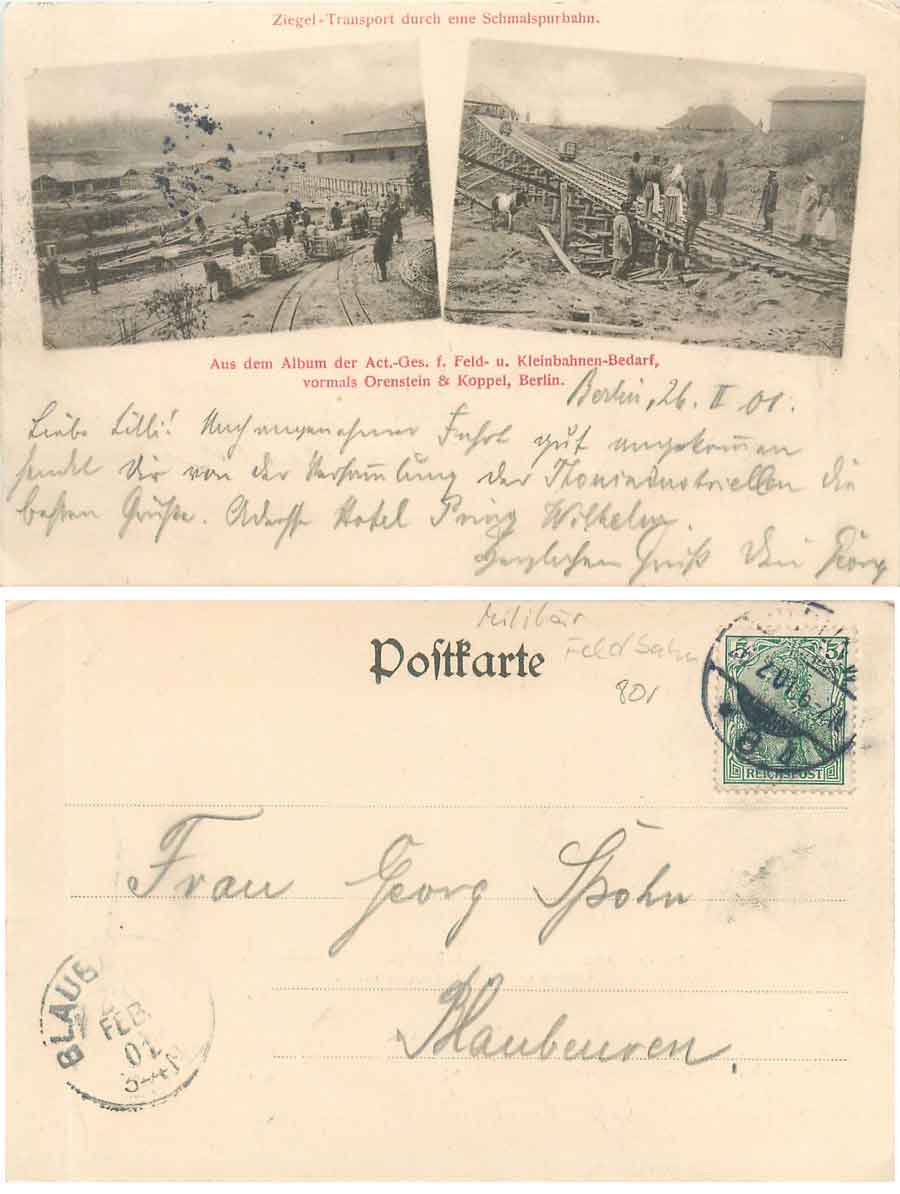 Ziegel-Transport durch eine Schmalspurbahn.
Aus dem Album der Act.-Ges. f. Feld- u. Kleinbahnen-Bedarf,
vormals Orenstein & Koppel, Berlin.
Berlin, 26. II 01.
Liebe Lilli! Nach angenehmer Fahrt gut angekommen
sendet Dir von der Versammlung der Thonindustriellen die
besten Grüße. Adresse Hotel Prinz Wilhelm.
Herzlichen Gruß Dein Georg
Militär
Postkarte
Feldbahn
801
5 5
REICHSPOST
Frau Georg Spohn
Blaubeuren.
BLAUB
FEB.
01
3-4